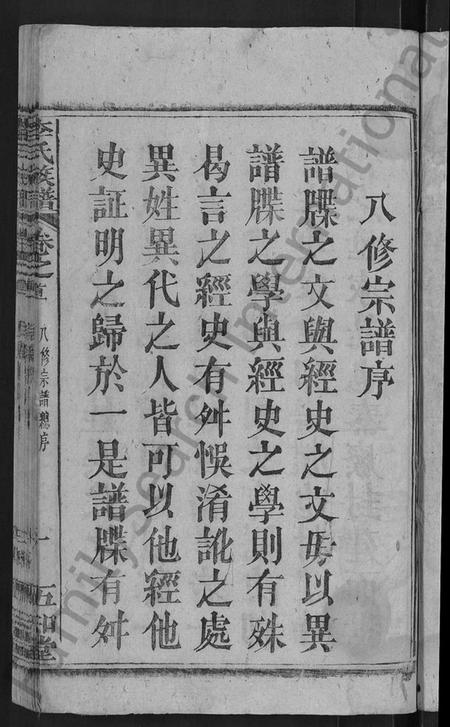 八修宗譜序
譜牒之文與經史之文毋以異
譜牒之學與經史之學則有殊
曷言之經史有舛悞淆訛之處
異姓異代之人皆可以他經他
史証明之歸於一是譜牒有舛
李氏族譜 卷之首 八修宗譜總序 一 五知堂
FamilySearch International